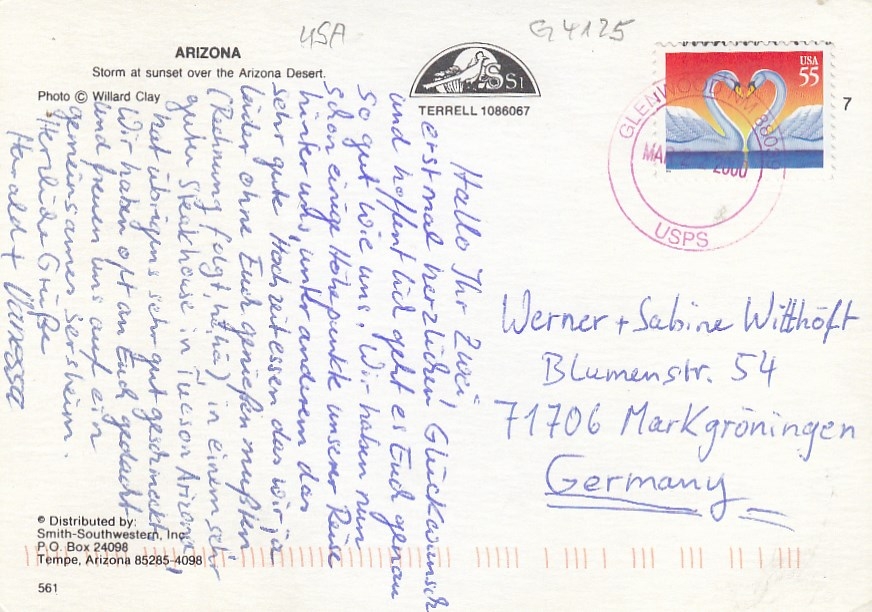 USA
G4125
ARIZONA
Storm at sunset over the Arizona Desert.
Photo © Willard Clay
SS1
TERRELL 1086067
USA
55
7
GLENWOOD NM 88039
MAR 2000
USPS
Hallo Ihr Zwei!
erstmal herzlichen Glückwunsch
und hoffentlich geht es Euch genau
so gut wie uns. Wir haben nun
schon einige Höhepunkte unserer Reise
hinter uns, unter anderem das
sehr gute Hochzeitessen das wir ja
leider ohne Euch genießen mußten
(Rechnung folgt, haha) in einem sehr
guten Steakhouse in Tucson Arizona,
hat übrigens sehr gut geschmeckt.
Wir haben oft an Euch gedacht
und freuen uns auf ein
gemeinsames Sersheim.
Herzliche Grüße
Harald +
Werner + Sabine Witthöft
Blumenstr. 54
71706 Markgröningen
Germany
© Distributed by:
Smith-Southwestern, Inc.
P.O. Box 24098
Tempe, Arizona 85285-4098
561